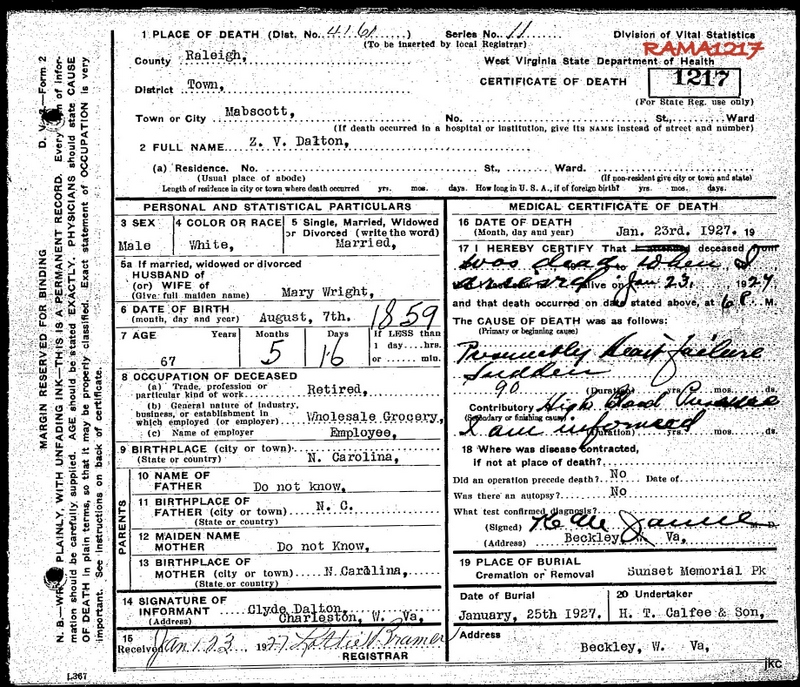 MARGIN RESERVED FOR BINDING D. V. 2.—Form 2
N. B.—WRITE PLAINLY, WITH UNFADING INK—THIS IS A PERMANENT RECORD. Every item of infor-
mation should be carefully supplied. AGE should be stated EXACTLY. PHYSICIANS should state CAUSE
OF DEATH in plain terms, so that it may be properly classified. Exact statement of OCCUPATION is very
important. See instructions on back of certificate.
1 PLACE OF DEATH (Dist. No. 4161) Series No. 11
(To be inserted by local Registrar)
Division of Vital Statistics
RAMA1217
County Raleigh,
West Virginia State Department of Health
CERTIFICATE OF DEATH 1217
(For State Reg. use only)
District Town,
Town or City Mabscott, No. St., Ward
(If death occurred in a hospital or institution, give its NAME instead of street and number)
2 FULL NAME Z. V. Dalton,
(a) Residence. No. St., Ward.
(Usual place of abode) (If non-resident give city or town and state)
Length of residence in city or town where death occurred yrs. mos. days. How long in U. S. A., if of foreign birth? yrs. mos. days.
PERSONAL AND STATISTICAL PARTICULARS
3 SEX
Male
4 COLOR OR RACE
White,
5 Single, Married, Widowed
or Divorced (write the word)
Married,
5a If married, widowed or divorced
HUSBAND of
(or) WIFE of
(Give full maiden name) Mary Wright,
6 DATE OF BIRTH
(month, day and year) August, 7th. 1859
7 AGE Years Months Days If LESS than
1 day....hrs.
67 5 16 or ...... min.
8 OCCUPATION OF DECEASED
(a) Trade, profession or
particular kind of work Retired,
(b) General nature of industry,
business, or establishment in
which employed (or employer) Wholesale Grocery,
(c) Name of employer Employee,
9 BIRTHPLACE (city or town)
(State or country) N. Carolina,
PARENTS
10 NAME OF
FATHER Do not know,
11 BIRTHPLACE OF
FATHER (city or town) N. C.
(State or country)
12 MAIDEN NAME
MOTHER Do not Know,
13 BIRTHPLACE OF
MOTHER (city or town) N.Carolina,
(State or country)
14 SIGNATURE OF
INFORMANT Clyde Dalton,
(Address) Charleston, W. Va,
15
Received Jan 23 1927 Lottie W. Cramer
REGISTRAR
MEDICAL CERTIFICATE OF DEATH
16 DATE OF DEATH
(Month, day and year) Jan. 23rd. 1927. 19
17 I HEREBY CERTIFY That deceased from
was dead when I
arrived alive on Jan 23, 1927
and that death occurred on date stated above, at 6 P. M.
The CAUSE OF DEATH was as follows:
(Primary or beginning cause)
Presumably Heart failure
Sudden
90 (Duration) yrs. mos. ds.
Contributory High Blood Pressure
(Secondary or finishing cause)
I am informed (Duration) yrs. mos. ds.
18 Where was disease contracted,
if not at place of death?
Did an operation precede death? No Date of
Was there an autopsy? No
What test confirmed diagnosis?
(Signed)
(Address) Beckley, Va,
19 PLACE OF BURIAL
Cremation or Removal Sunset Memorial Pk
Date of Burial
January, 25th 1927.
20 Undertaker
H. T. Calfee & Son,
Address
Beckley, W. Va,
L367
jkc